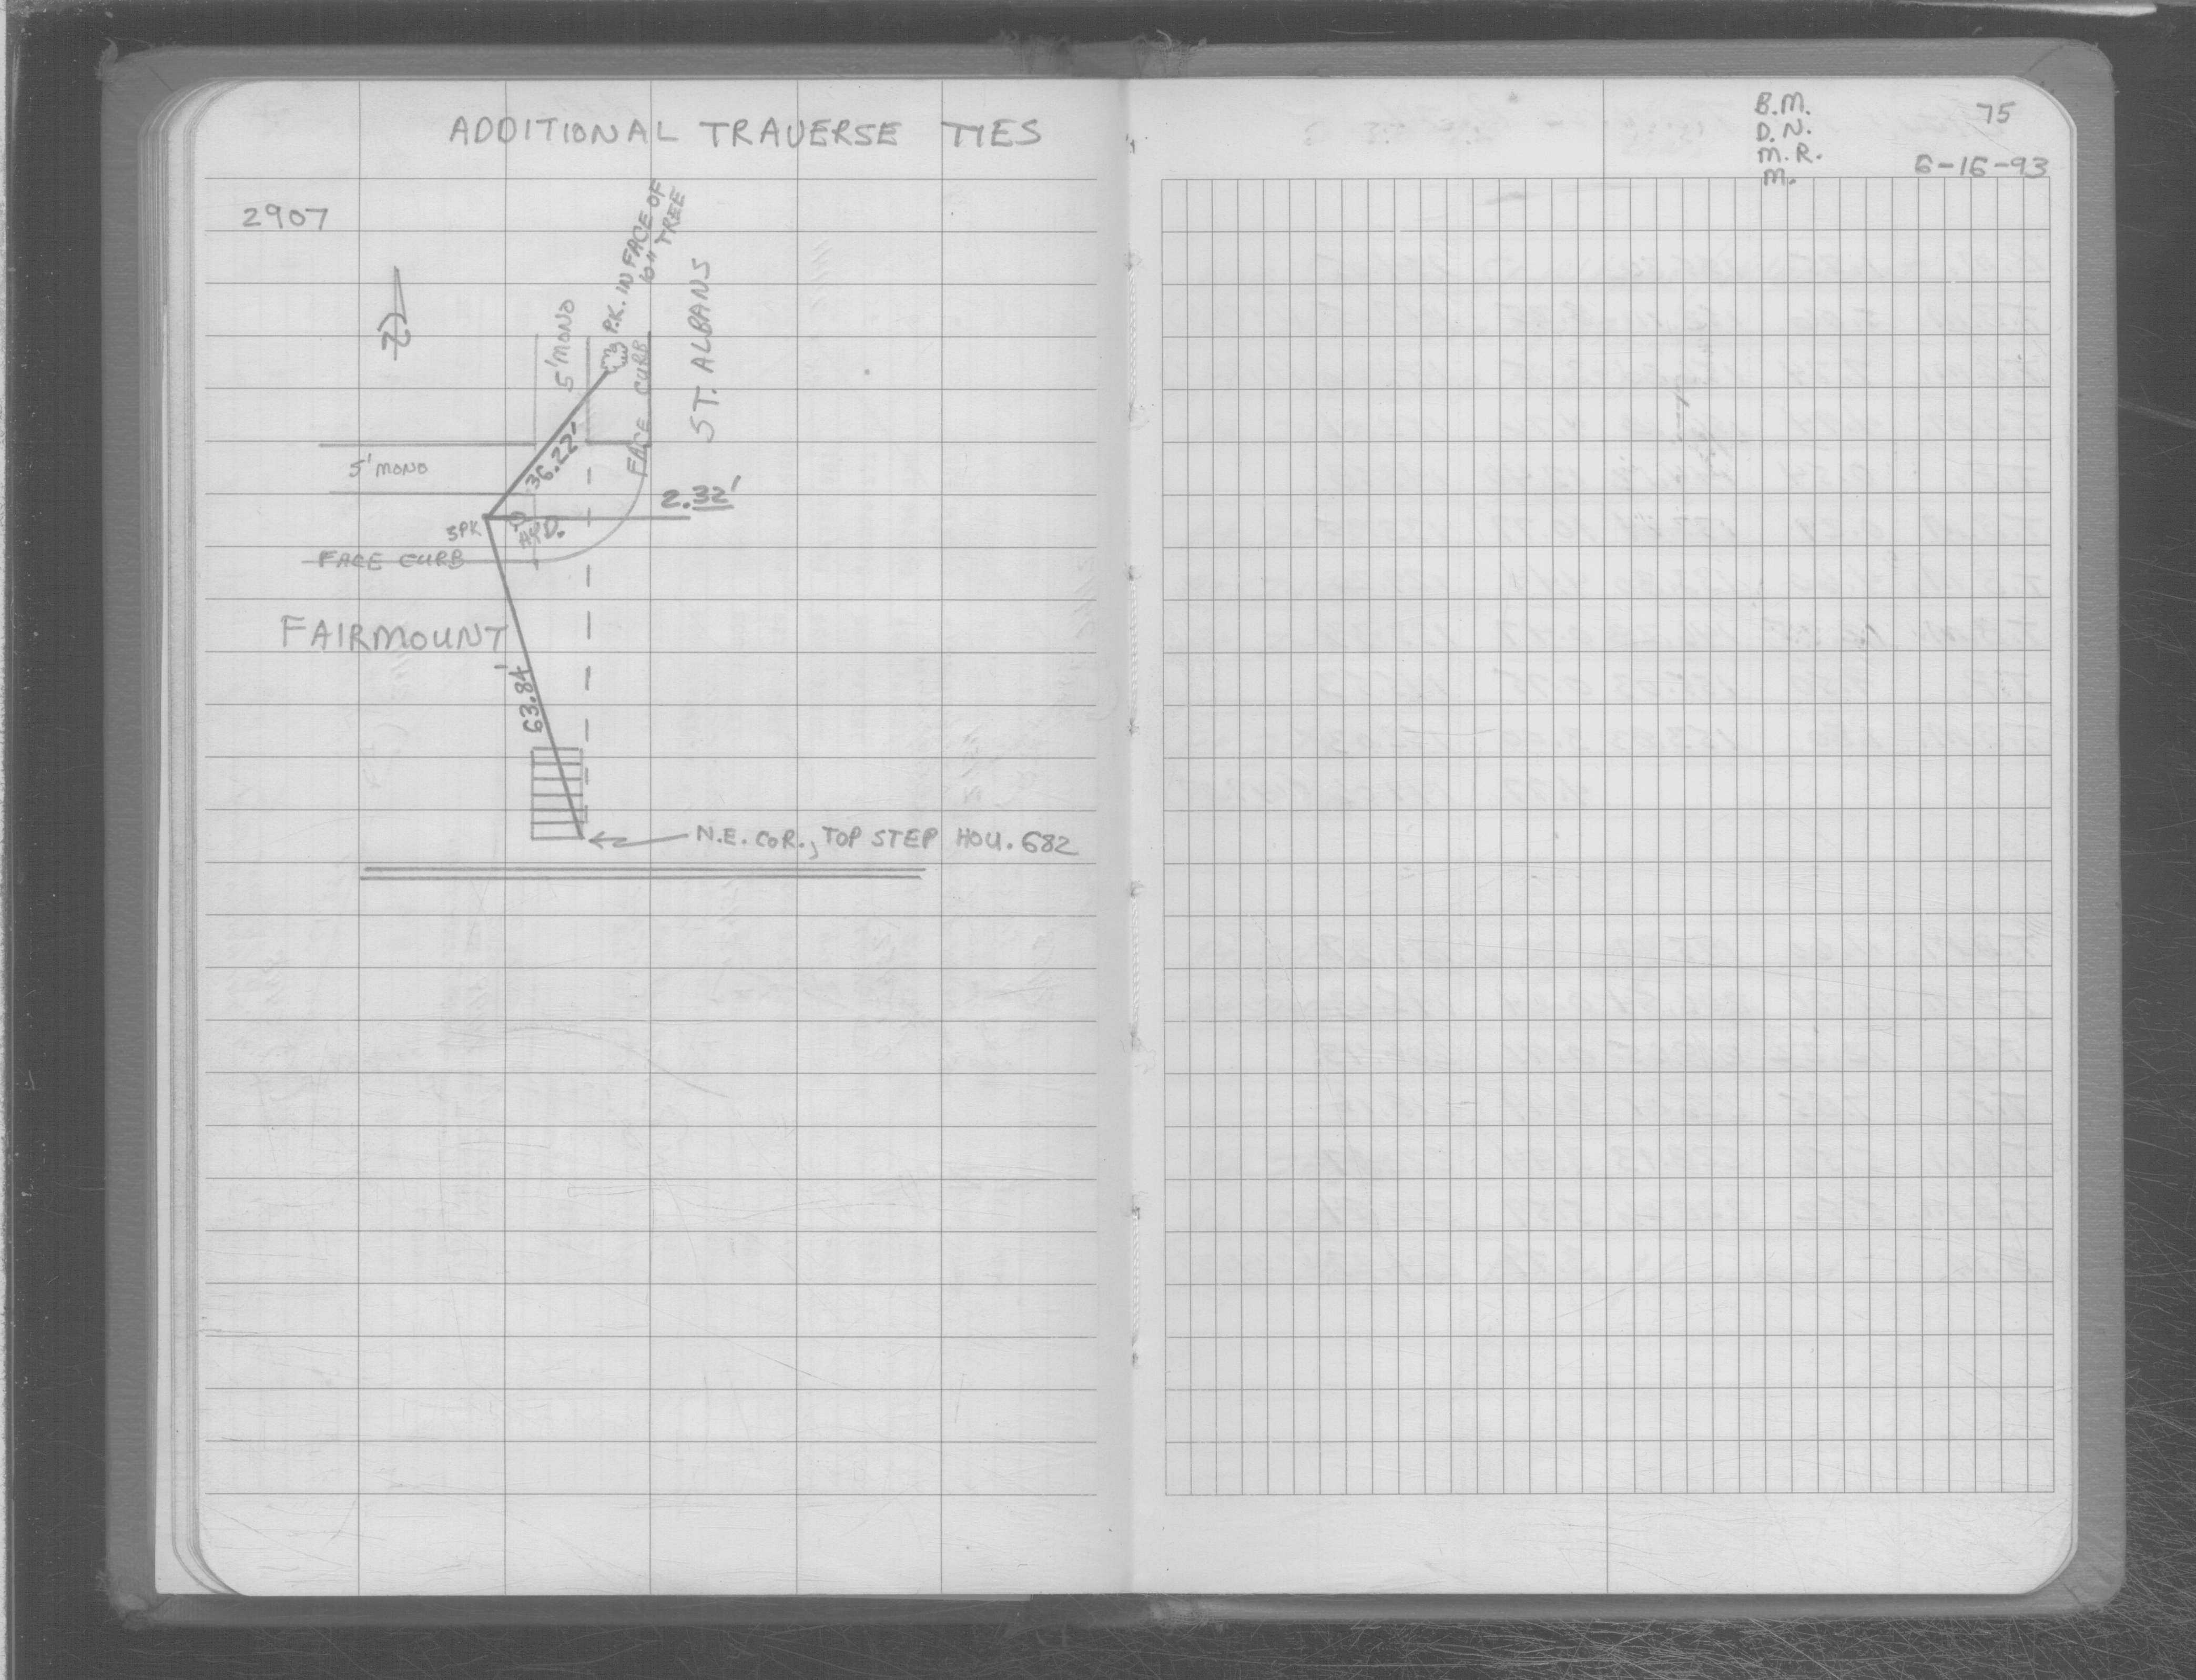 ADDITIONAL TRAVERSE TIES
2907
N
P.K. IN FACE OF
TREE
5' MONO
FACE CURB
ST. ALBANS
36.22'
5' MONO
2.32'
3PK
HYD.
FACE CURB
FAIRMOUNT
63.84'
N.E. COR., TOP STEP HOU. 682
B.M.
D.N.
M.R.
M.
75
6-16-93